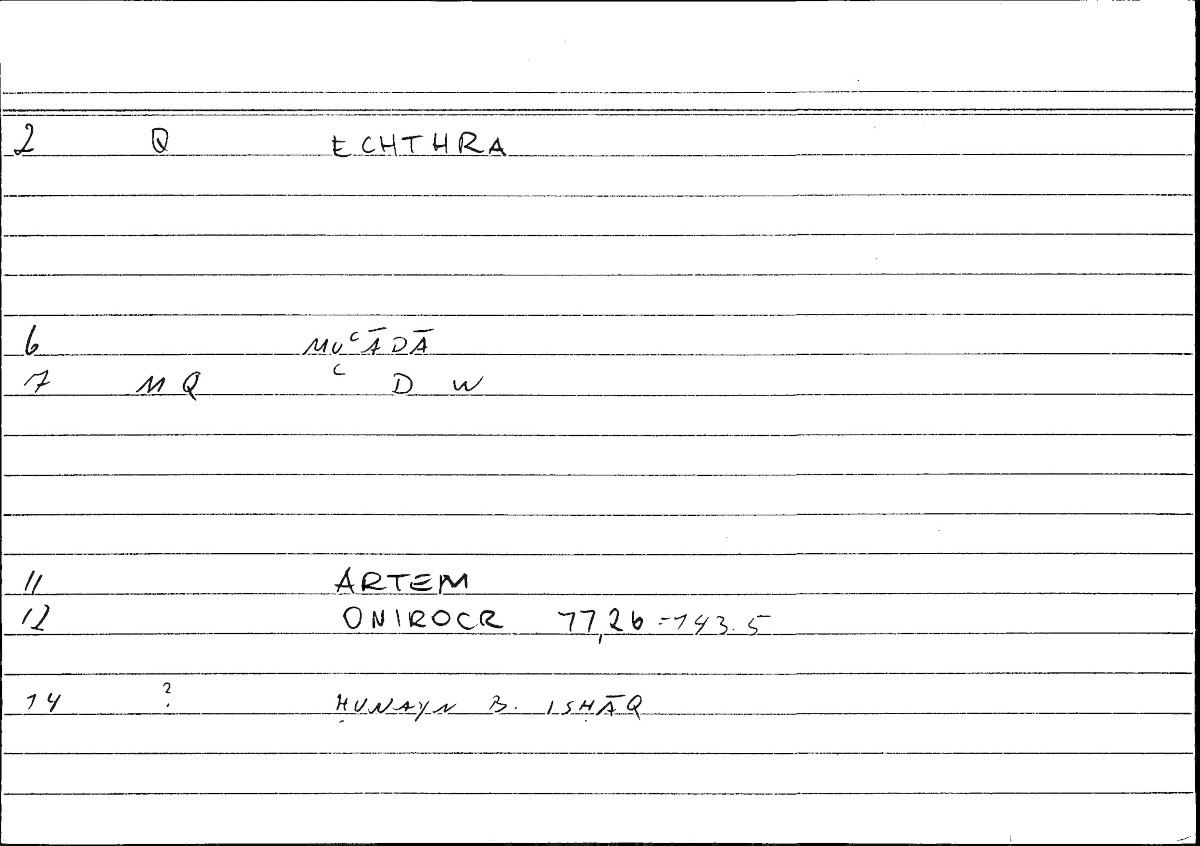 2 Q ECHTHRA
6 MUʿĀDĀ
7 MQ ʿ D W
11 ARTEM
12 ONIROCR 77,26=143.5
14 ? ḤUNAYN B. ISḤĀQ